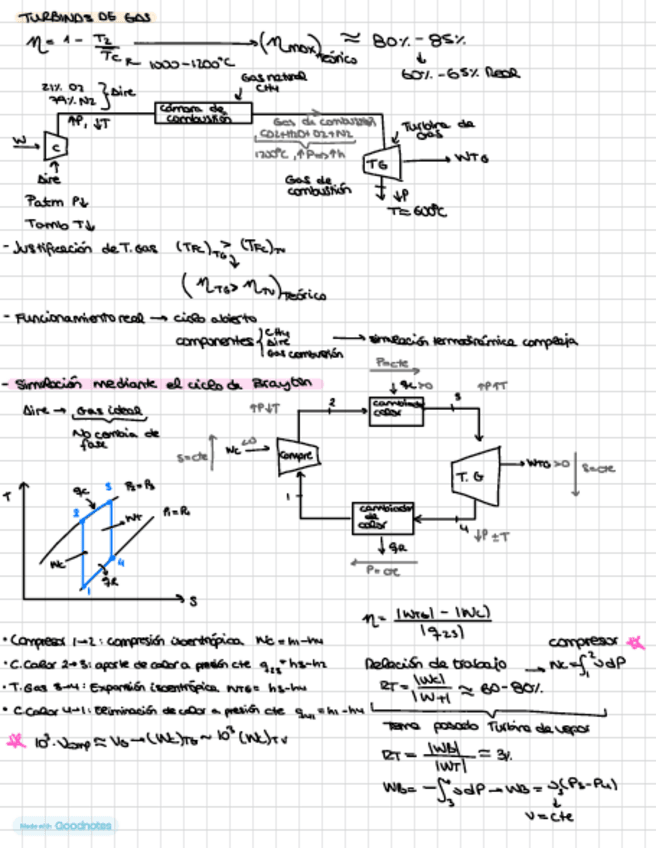 TURBINAS DE GAS
η = 1 - T2/TC → (ηmax)Teórico ≈ 80% - 85%
1000-1200°C
60% - 65% Real
21% O2
79% N2
Aire
Gas natural
CH4
↑P, ↓T
Cámara de combustión
Gas de combustión
CO2+H2O+O2+N2
1200°C, ↑P⇒↑h
Turbina de Gas
W
C
TG
WTG
Aire
Gas de combustión
↓P
T≈600°C
Patm P↓
Tamb T↓
- Justificación de T. Gas (TFC)TG > (TFC)TV
(ηTG > ηTV)Teórico
- Funcionamiento real → ciclo abierto
componentes { CH4
Aire
Gas combustión
→ simulación termodinámica compleja
- Simulación mediante el ciclo de Brayton
P=cte
qc>0
Aire → Gas ideal
No cambia de fase
↑P↓T
2
cambiador calor
3
↑P↑T
S=cte
Wc <0
Compre
T. G
WTG>0
S=cte
1
cambiador de calor
4
↓P ±T
qR
P=cte
T
qc
3
P2=P3
2
WT
P1=P4
Wc
4
qR
1
S
η = |WTG| - |WC| / |q23|
• Compresor 1→2: compresión isentrópica Wc = h1-h4
• C.Calor 2→3: aporte de calor a presión cte q23 = h3-h2
• T.Gas 3→4: Expansión isentrópica WTG = h3-h4
• C.Calor 4→1: Eliminación de calor a presión cte q41 = h1-h4
10³·vcomp ≈ VB → (Wc)TG ~ 10³ (Wc)TV
compresor
Relación de trabajo → Wc = ∫₁² v dP
RT = |Wc| / |WT| ≈ 60-80%
Tema pasado Turbina de vapor
RT = |WB| / |WT| ≈ 3%
WB = -∫₃⁴ v dP → WB = v3(P3-P4)
v=cte
Made with Goodnotes